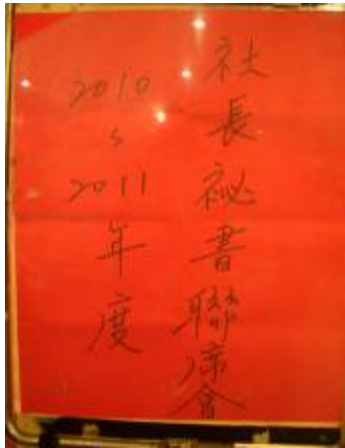 社長祕書聯席會
2010~2011年度